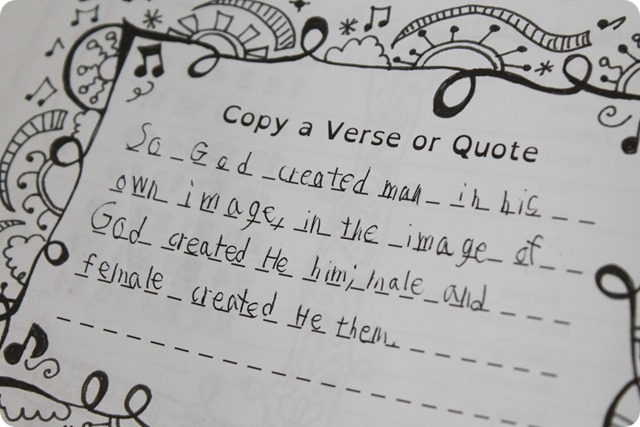 Copy a Verse or Quote
So God created man in his
own image, in the image of
God created He him; male and
female created He them.